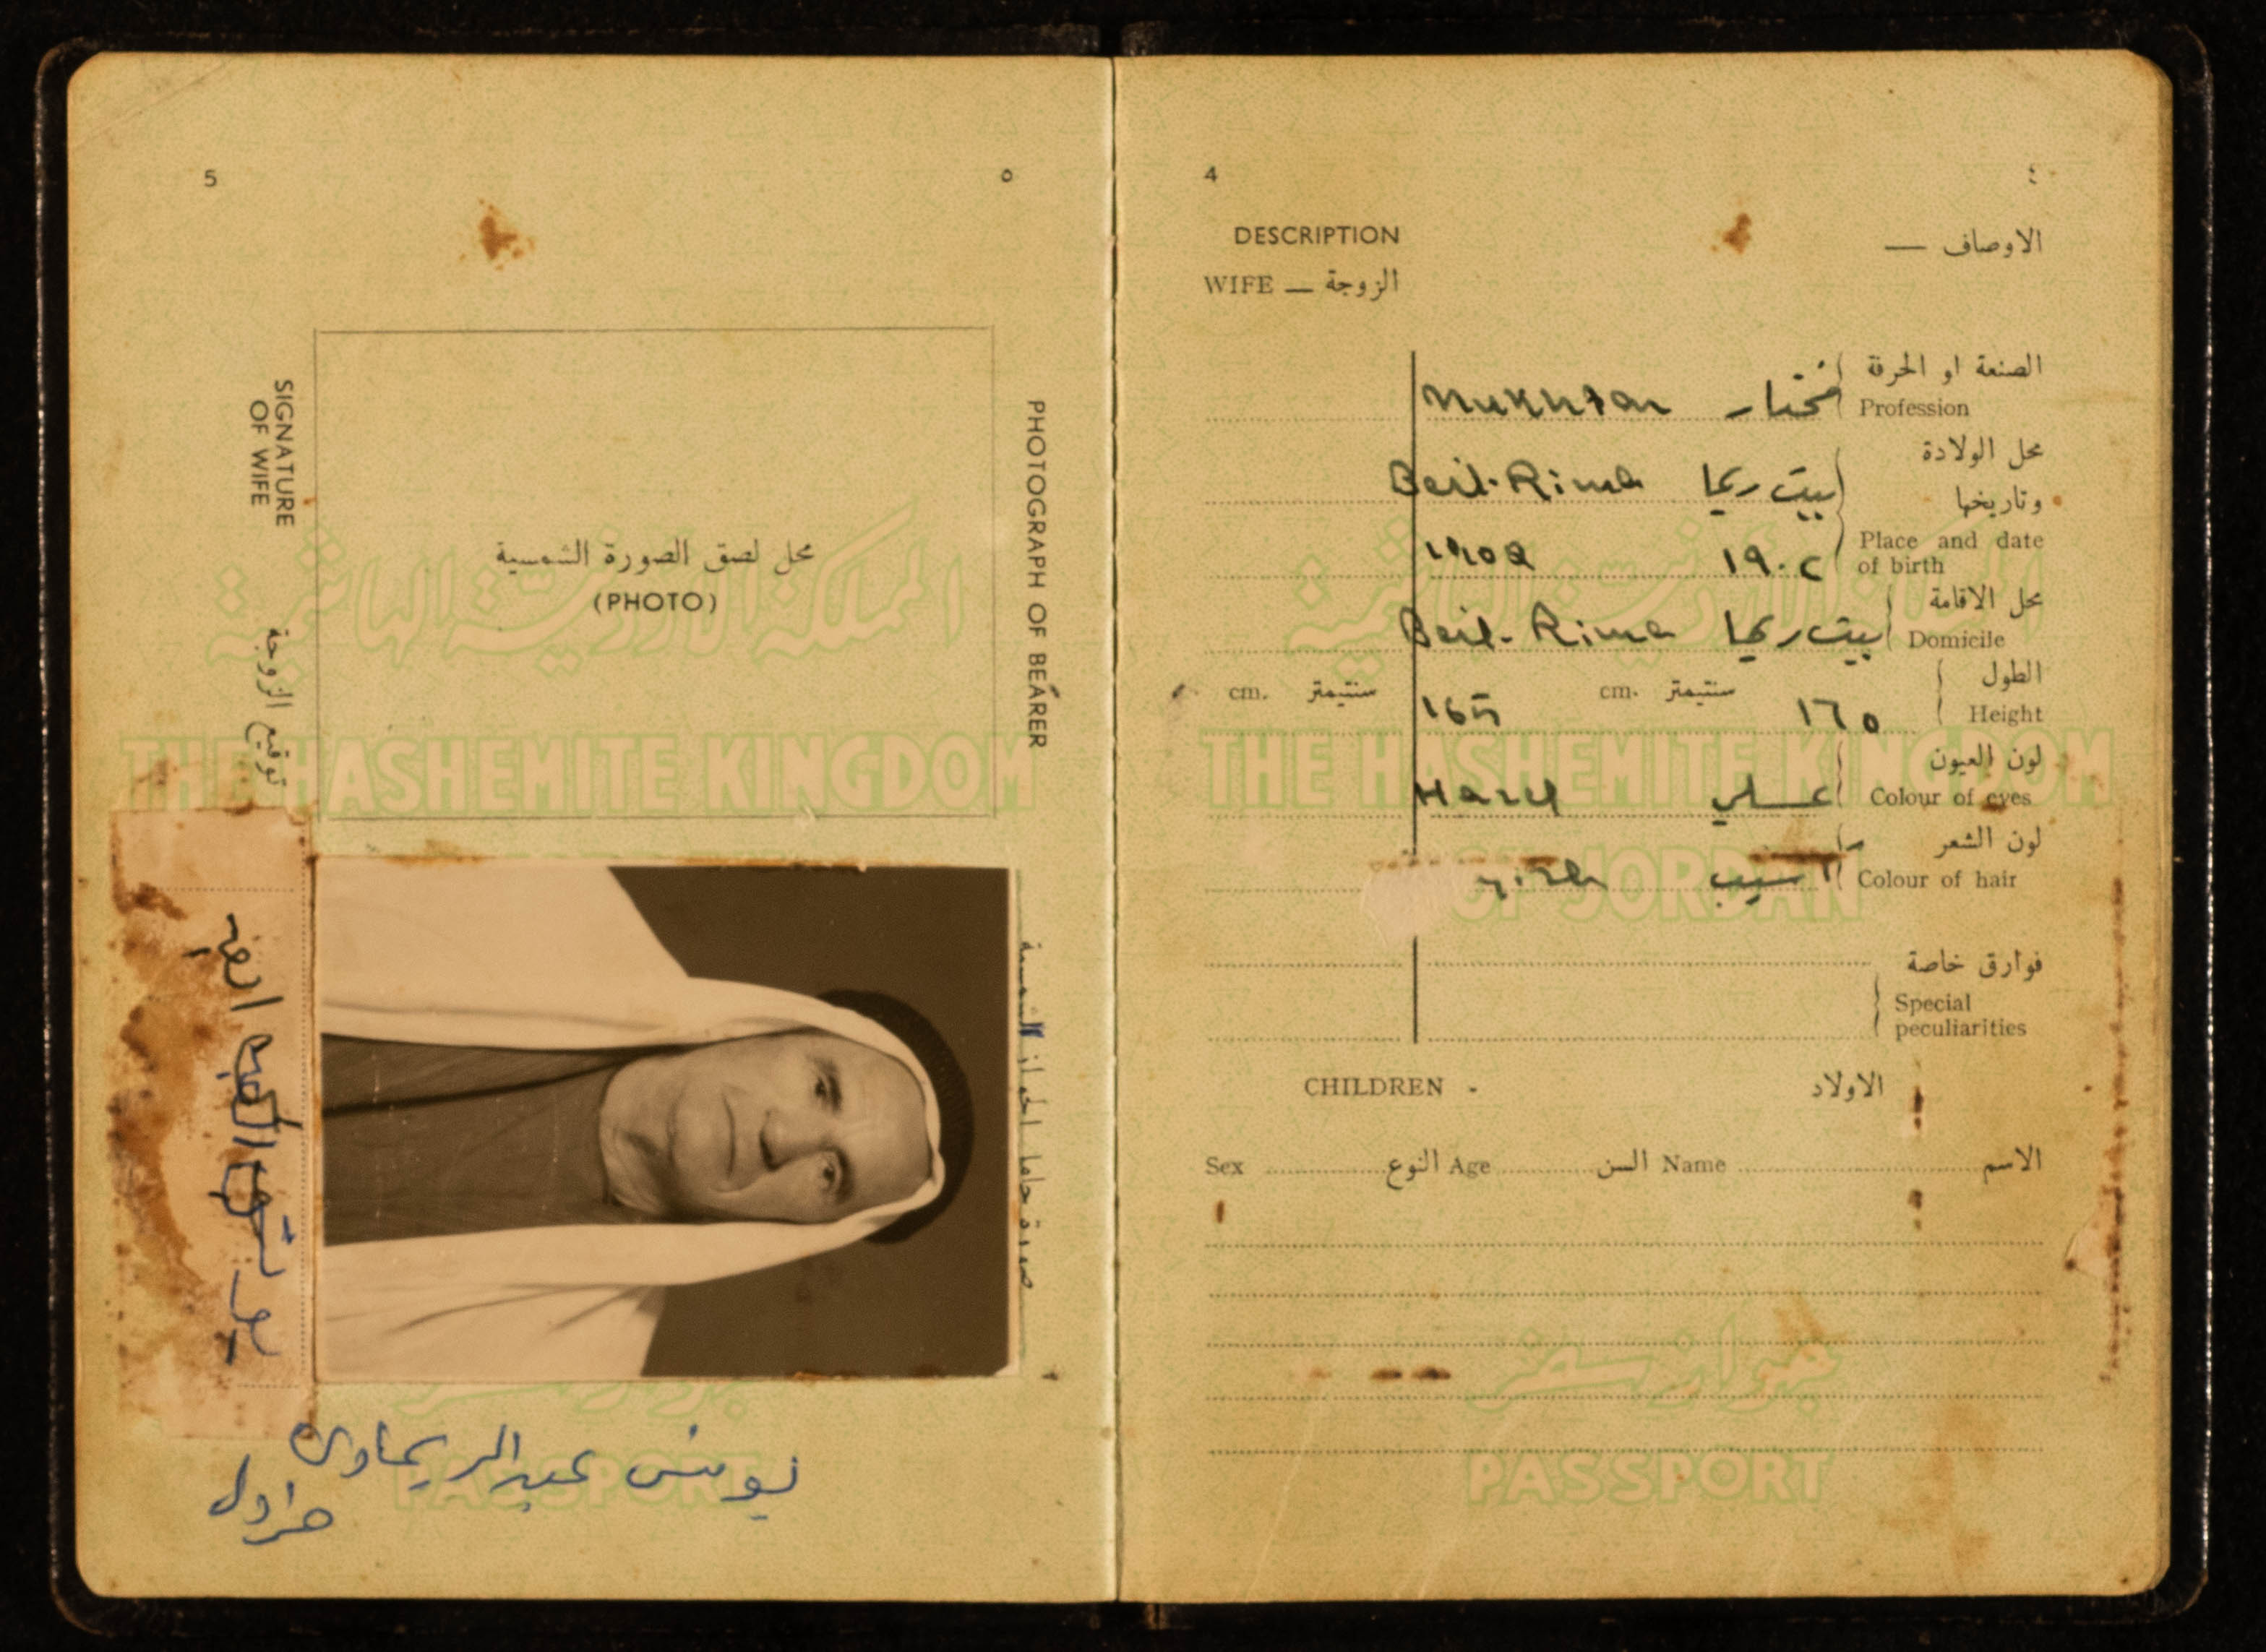 5 ٥
SIGNATURE
OF WIFE
توقيع الزوجة
PHOTOGRAPH OF BEARER
محل لصق الصورة الشمسية
(PHOTO)
المملكة الأردنية الهاشمية
THE HASHEMITE KINGDOM
صورة حامل الجواز الشمسية
PASSPORT
يونس عبد الريماوي
4 ٤
DESCRIPTION الاوصاف —
WIFE — الزوجة
الصنعة او الحرفة
Profession مختار Mukhtar
محل الولادة
وتاريخها
بيت ريما Beit-Rima
Place and date
of birth ١٩٠٢ 1902
محل الاقامة
Domicile بيت ريما Beit-Rima
الطول
cm. سنتيمتر cm. سنتيمتر
Height ١٦٥ 165
لون العيون
Colour of eyes عسلي Hazel
لون الشعر
Colour of hair
فوارق خاصة
Special
peculiarities
THE HASHEMITE KINGDOM
OF JORDAN
CHILDREN - الاولاد
Sex النوع Age السن Name الاسم
جواز سفر
PASSPORT